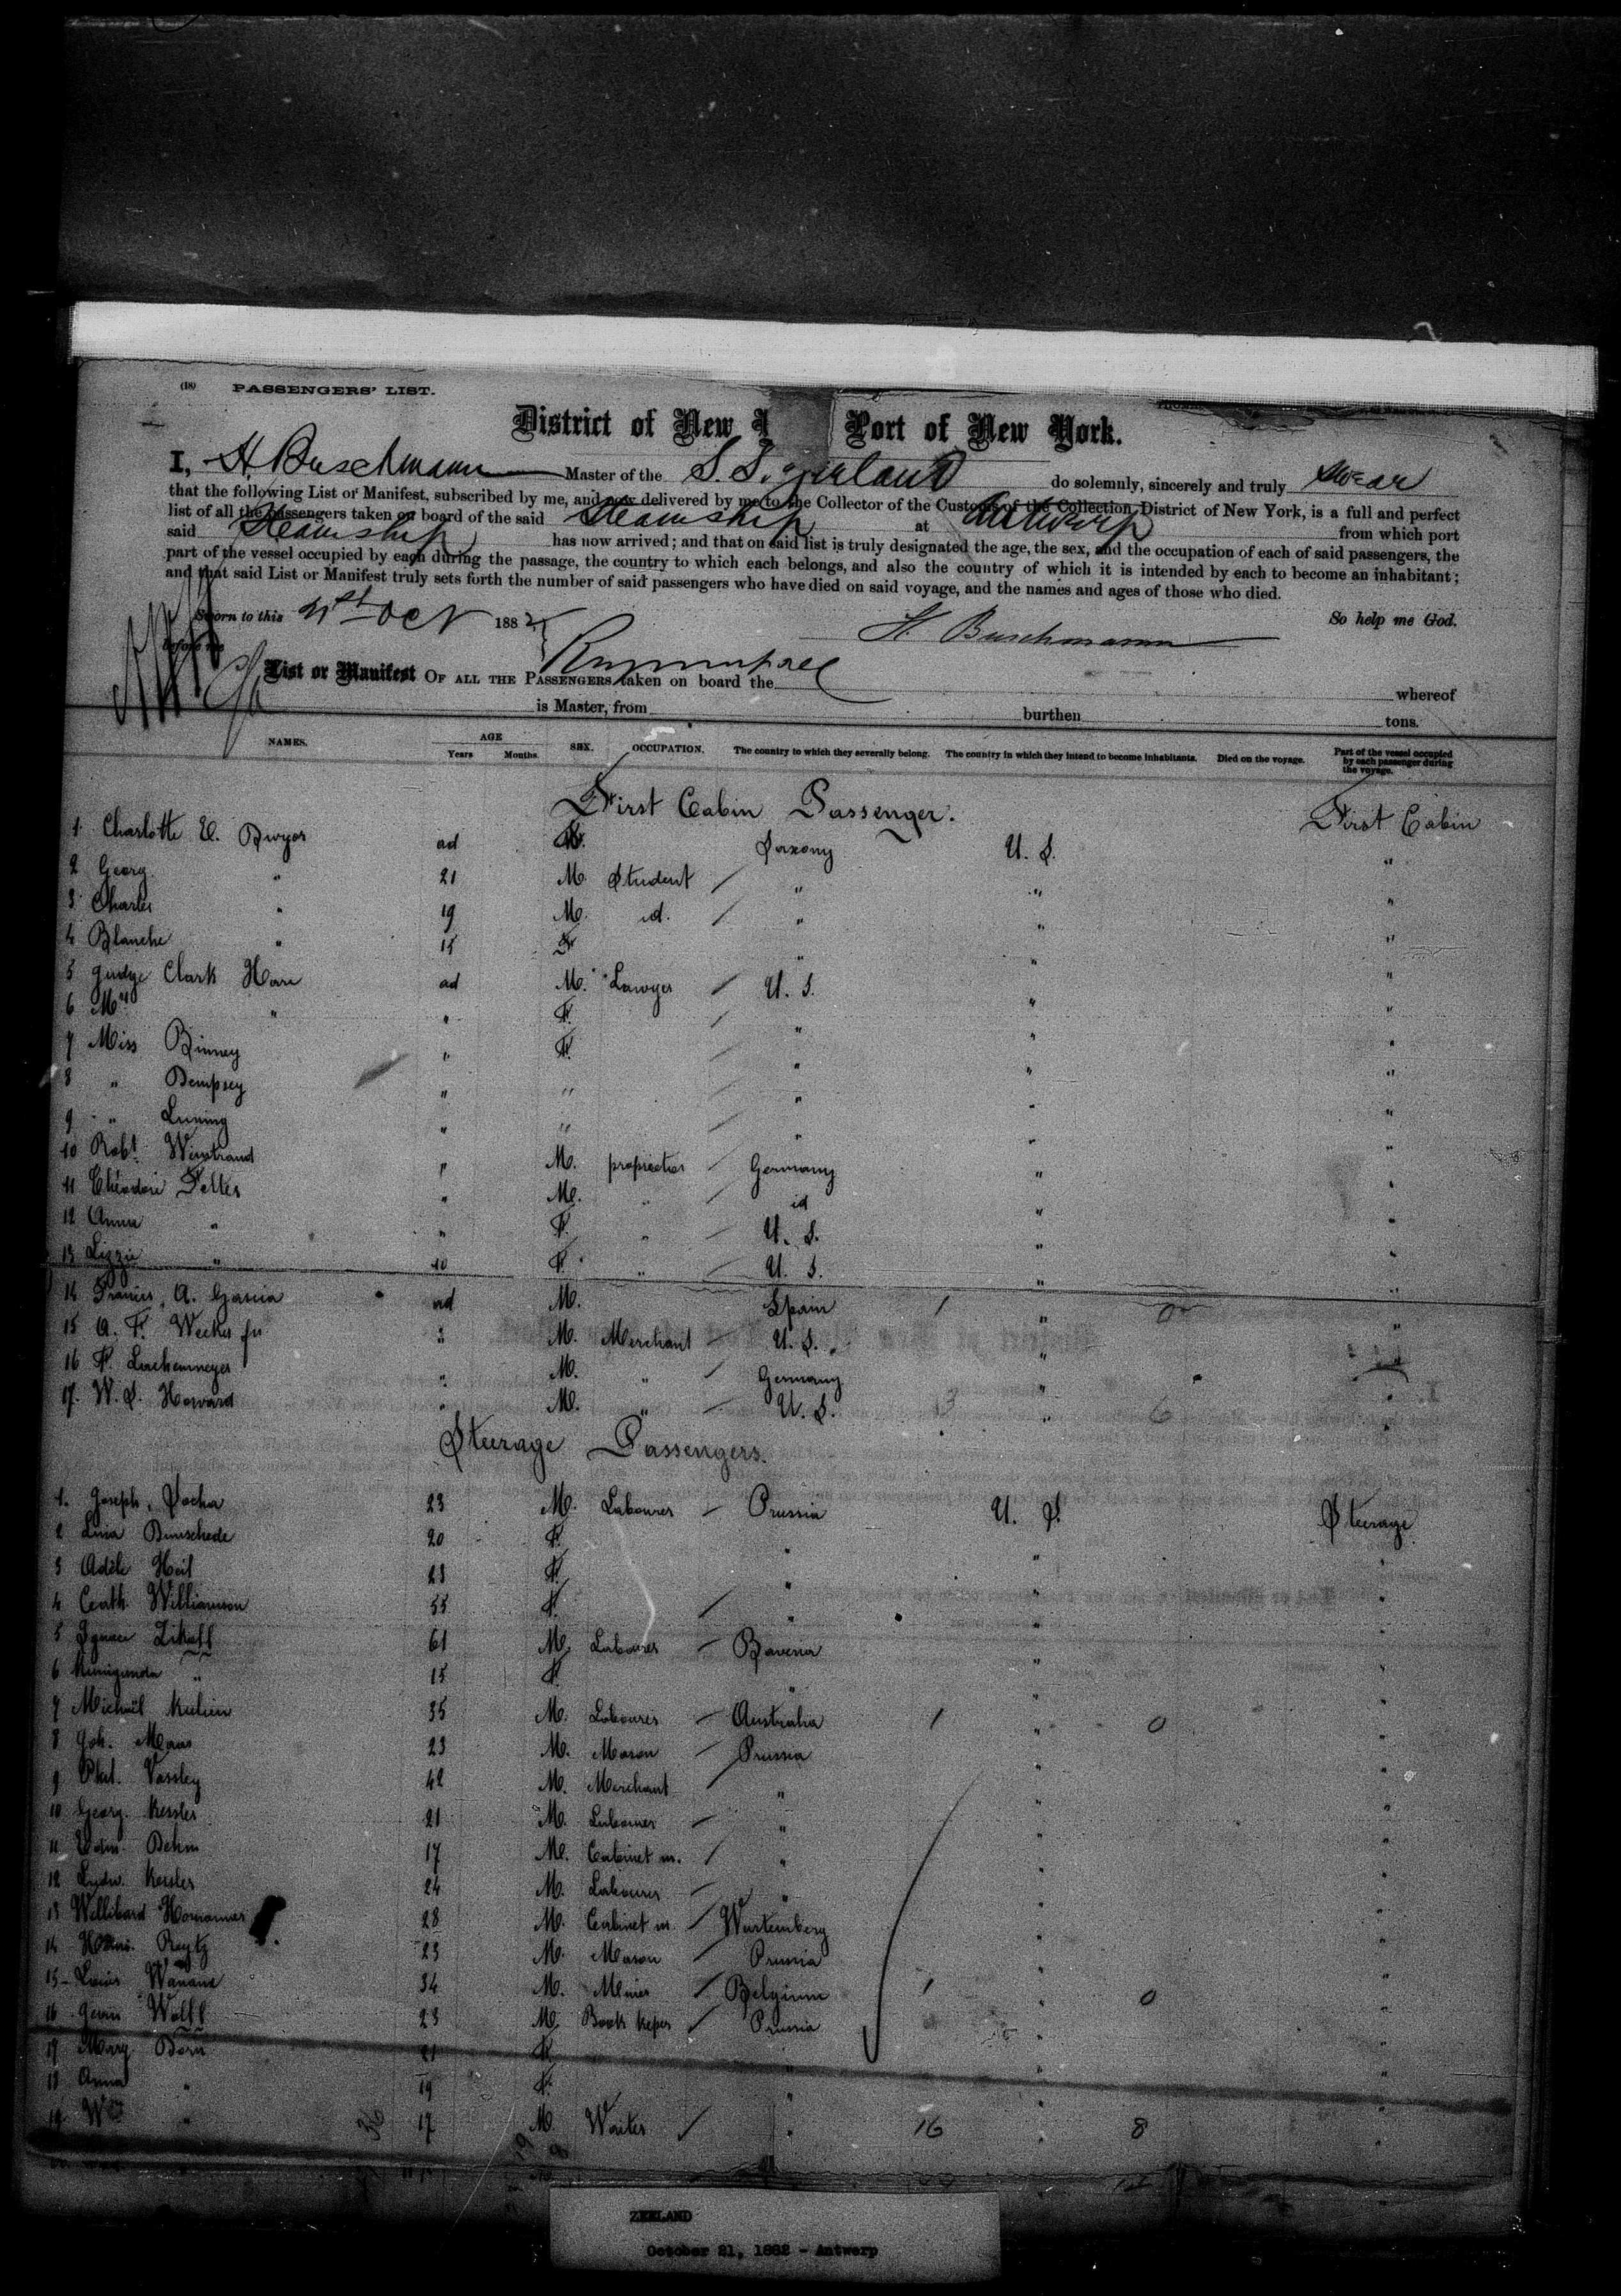 (18) PASSENGERS' LIST.
District of New Y Port of New York.
I, H. Buschmann Master of the S. S. Zeeland do solemnly, sincerely and truly swear
that the following List or Manifest, subscribed by me, and now delivered by me to the Collector of the Customs of the Collection District of New York, is a full and perfect
list of all the passengers taken on board of the said Steamship at Antwerp from which port
said Steamship has now arrived; and that on said list is truly designated the age, the sex, and the occupation of each of said passengers, the
part of the vessel occupied by each during the passage, the country to which each belongs, and also the country of which it is intended by each to become an inhabitant;
and that said List or Manifest truly sets forth the number of said passengers who have died on said voyage, and the names and ages of those who died.
Sworn to this 21st Oct 1882 So help me God.
before me H. Buschmann
List or Manifest OF ALL THE PASSENGERS taken on board the whereof
is Master, from burthen tons.
NAMES. AGE Years Months. SEX. OCCUPATION. The country to which they severally belong. The country in which they intend to become inhabitants. Died on the voyage. Part of the vessel occupied by each passenger during the voyage.
First Cabin Passenger. First Cabin
1 Charlotte E. ad F. Saxony U. S. "
2 Georg " 21 M. Student / " " "
3 Charles " 19 M. id. / " " "
4 Blanche " 15 F " " "
5 Judge Clark Hare ad M. Lawyer / U. S. " "
6 Mrs " " F. / " " "
7 Miss Binney " F. / " " "
8 " Dempsey " " / " " "
9 " Luning " " / " " "
10 Robt. " M. proprietor / Germany " "
11 Theodore " M. " / id " "
12 Anna " " F. " / U. S. " "
13 Lizzie " 10 F. " / U. S. " "
14 Francis A. Garcia ad M. Spain 1 " 0 "
15 A. F. Weekes jr. " M. Merchant / U. S. " "
16 F. " M. " / Germany " "
17. W. S. Howard " M. " / U. S. 13 " 6 "
Steerage Passengers.
1. Joseph Socha 23 M. Labourer / Prussia U. S. Steerage
2 Lina 20 F. " " "
3 Adèle Heil 23 F. " " "
4 Cath. Williamson 55 F. / " " "
5 Ignace 61 M. Labourer / Baveria " "
6 Kunigunda " 15 F. " " "
7 Michaël 35 M. Labourer / Australia 1 " 0 "
8 Joh. Maas 23 M. Mason / Prussia " "
9 Vassley 42 M. Merchant / " " "
10 Georg. Kessler 21 M. Labourer / " " "
11 Edm. Behm 17 M. Cabinet m. / " " "
12 Ludw. Kessler 24 M. Labourer / " " "
13 Willibard 28 M. Cabinet m. / Wurtemberg " "
14 23 M. Mason / Prussia " "
15 Louis 34 M. Miner / Belgium 1 " 0 "
16 Wolff 23 M. Book keper / Prussia " "
17 Mary Born 21 F. " " "
18 Anna " 19 F. " " "
19 Wm " 17 M. Waiter / " 16 " 8 "
ZEELAND
October 21, 1882 - Antwerp